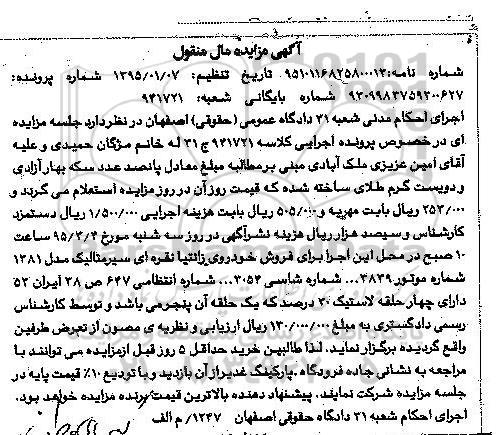 آگهی مزایده مال منقول
شماره نامه: ۹۵۱۰۱۱۶۸۲۵۸۰۰۰۱۴ تاریخ تنظیم: ۱۳۹۵/۰۱/۰۷ شماره پرونده:
۹۳۰۹۹۸۳۷۵۹۳۰۰۶۲۷ شماره بایگانی شعبه: ۹۴۱۷۲۱
اجرای احکام مدنی شعبه ۳۱ دادگاه عمومی (حقوقی) اصفهان در نظر دارد جلسه مزایده
ای در خصوص پرونده اجرایی کلاسه ۹۴۱۷۲۱ ج ۳۱ له خانم مژگان حمیدی و علیه
آقای امین عزیزی ملک آبادی مبنی بر مطالبه مبلغ معادل پانصد عدد سکه بهار آزادی
و دویست گرم طلای ساخته شده که قیمت روز آن در روز مزایده استعلام می گردد و
۲۵۳/۰۰۰ ریال بابت مهریه و ۵۰۵/۰۰۰ ریال بابت هزینه اجرایی ۱/۵۰۰/۰۰۰ ریال دستمزد
کارشناس و سیصد هزار ریال هزینه نشر آگهی در روز سه شنبه مورخ ۹۵/۳/۴ ساعت
۱۰ صبح در محل این اجرا برای فروش خودروی زانتیا نقره ای سیر متالیک مدل ۱۳۸۱
شماره موتور ۳۸۳۹... شماره شاسی ۳۰۵۴... شماره انتظامی ۶۴۷ ص ۳۸ ایران ۵۳
دارای چهار حلقه لاستیک ۳۰ درصد که یک حلقه آن پنچر می باشد و توسط کارشناس
رسمی دادگستری به مبلغ ۱۳۰/۰۰۰/۰۰۰ ریال ارزیابی و نظریه ی مصون از تعرض طرفین
واقع گردیده برگزار نماید. لذا طالبین خرید حداقل ۵ روز قبل از مزایده می توانند با
مراجعه به نشانی جاده فرودگاه. پارکینگ غدیر از آن بازدید و با تودیع ۱۰٪ قیمت پایه در
جلسه مزایده شرکت نمایند. پیشنهاد دهنده بالاترین قیمت برنده مزایده خواهد بود.
اجرای احکام شعبه ۳۱ دادگاه حقوقی اصفهان ۱۲۴۷/ م الف